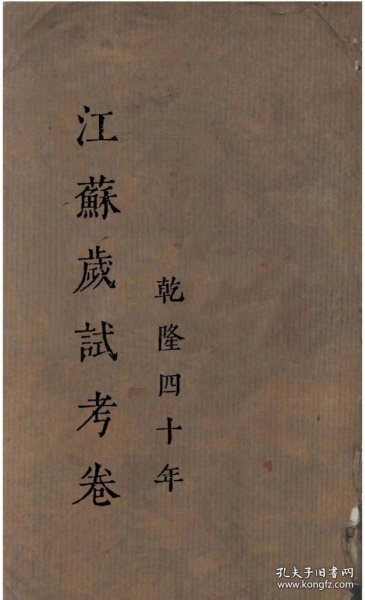 乾隆四十年
江蘇歲試考卷
孔夫子旧书网
www.kongfz.com